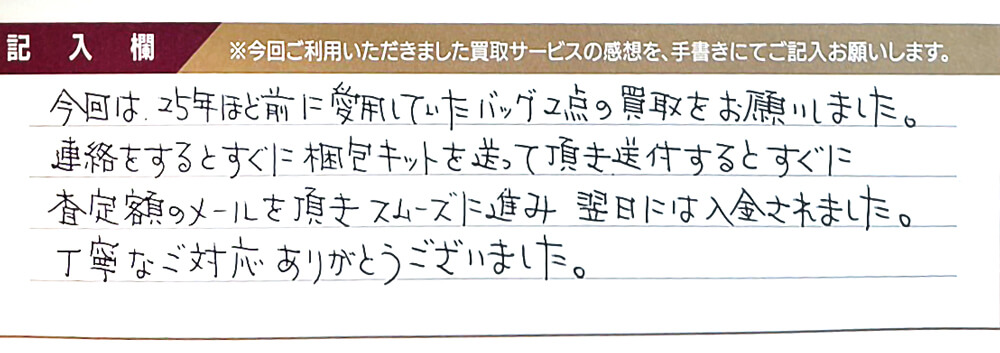 記入欄 ※今回ご利用いただきました買取サービスの感想を、手書きにてご記入お願いします。
今回は、25年ほど前に愛用していたバッグ2点の買取をお願いしました。
連絡をするとすぐに梱包キットを送って頂き送付するとすぐに
査定額のメールを頂きスムーズに進み 翌日には入金されました。
丁寧なご対応ありがとうございました。